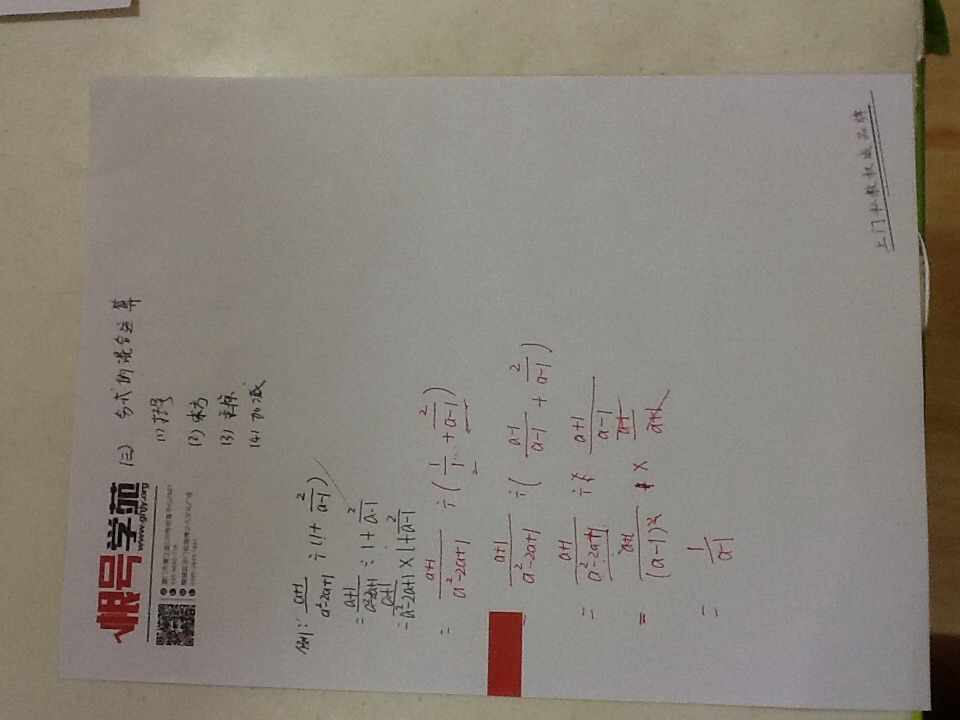 根号学苑
www.ghjy.org
(三) 分式的混合运算
(1) 括号
(2) 乘方
(3) 乘除
(4) 加减
例: (a+1)/(a²-2a+1) ÷ (1 + 2/(a-1))
= (a+1)/(a²-2a+1) ÷ 1 + 2/(a-1)
= (a+1)/(a²-2a+1) × 1 + 2/(a-1)
= (a+1)/(a²-2a+1) ÷ (1/1 + 2/(a-1))
= (a+1)/(a²-2a+1) ÷ ((a-1)/(a-1) + 2/(a-1))
= (a+1)/(a²-2a+1) ÷ (a+1)/(a-1)
= (a+1)/(a-1)² × (a-1)/(a+1)
= 1/(a-1)
上门私教权威品牌